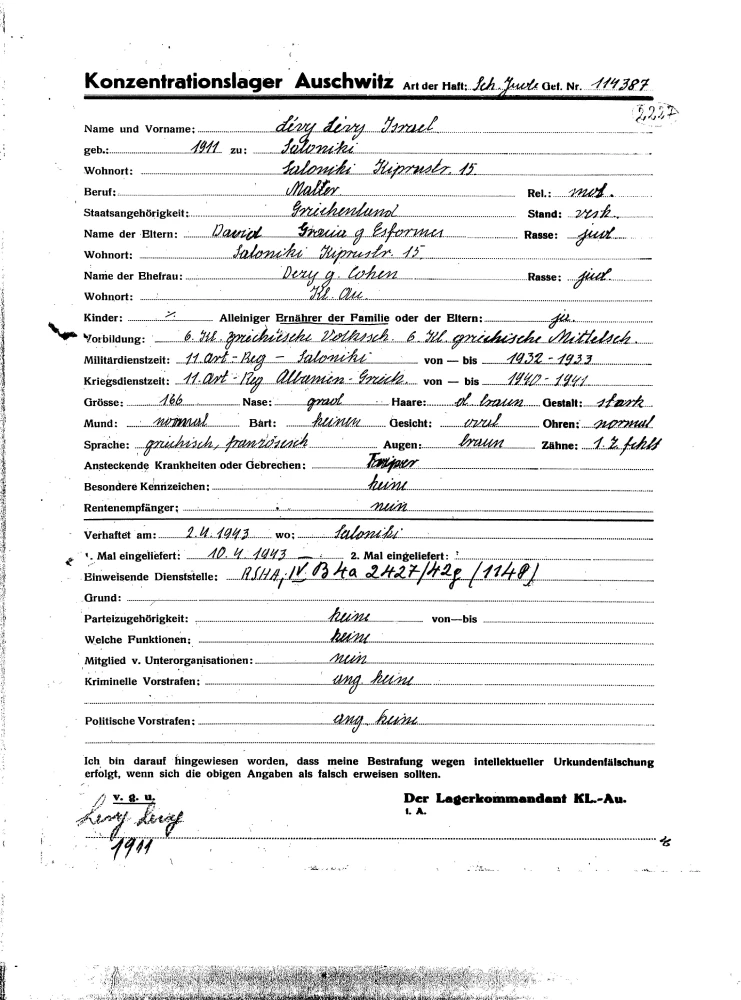 Konzentrationslager Auschwitz Art der Haft: Sch. Jude Gef. Nr. 114387
2227
Name und Vorname: Lévy Lévy Israel
geb.: 1911 zu: Saloniki
Wohnort: Saloniki Kiprustr. 15
Beruf: Rel.: mos.
Staatsangehörigkeit: Griechenland Stand: verh.
Name der Eltern: David Gracia g Esformes Rasse: jüd.
Wohnort: Saloniki Kiprustr. 15
Name der Ehefrau: Dezy g. Cohen Rasse: jüd.
Wohnort: Kl. Au.
Kinder: % Alleiniger Ernährer der Familie oder der Eltern: ja.
Vorbildung: 6. Kl. griechische Volkssch. 6 Kl. griechische Mittelsch.
Militärdienstzeit: 11. Art-Reg - Saloniki von — bis 1932-1933
Kriegsdienstzeit: 11. Art-Reg Albanien-Griech. von — bis 1940-1941
Grösse: 166 Nase: grad Haare: d. braun Gestalt: stark
Mund: normal Bart: keinen Gesicht: oval Ohren: normal
Sprache: griechisch, französisch Augen: braun Zähne: 1. Z. fehlt
Ansteckende Krankheiten oder Gebrechen: Tripper
Besondere Kennzeichen: keine
Rentenempfänger: nein
Verhaftet am: 2.4.1943 wo: Saloniki
1. Mal eingeliefert: 10.4.1943 2. Mal eingeliefert:
Einweisende Dienststelle: RSHA, IV B4a 2427/42g (1148)
Grund:
Parteizugehörigkeit: keine von—bis
Welche Funktionen: keine
Mitglied v. Unterorganisationen: nein
Kriminelle Vorstrafen: ang. keine
Politische Vorstrafen: ang. keine
Ich bin darauf hingewiesen worden, dass meine Bestrafung wegen intellektueller Urkundenfälschung
erfolgt, wenn sich die obigen Angaben als falsch erweisen sollten.
v. g. u. Der Lagerkommandant KL.-Au.
I. A.
Levy Levy
1911